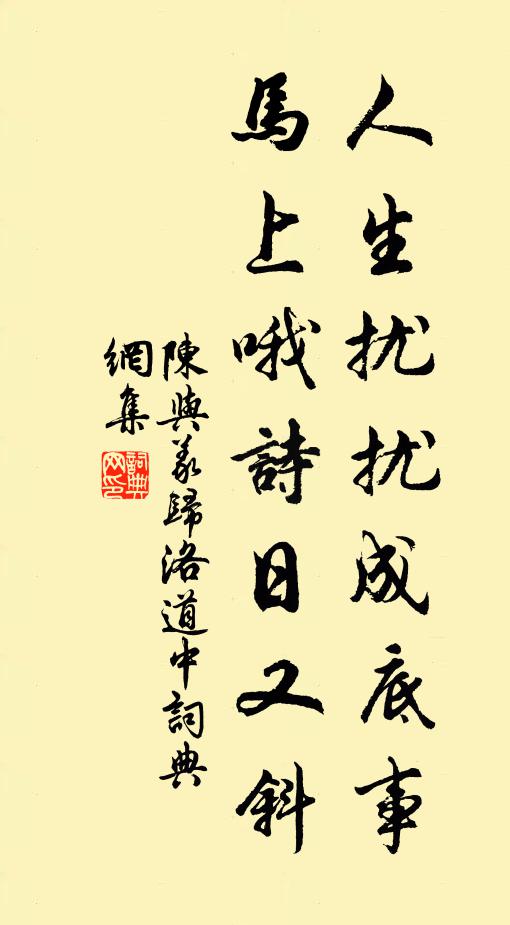 人生扰扰成底事
馬上哦詩日又斜
陳與义歸洛道中詞典
網集
詞典
网印